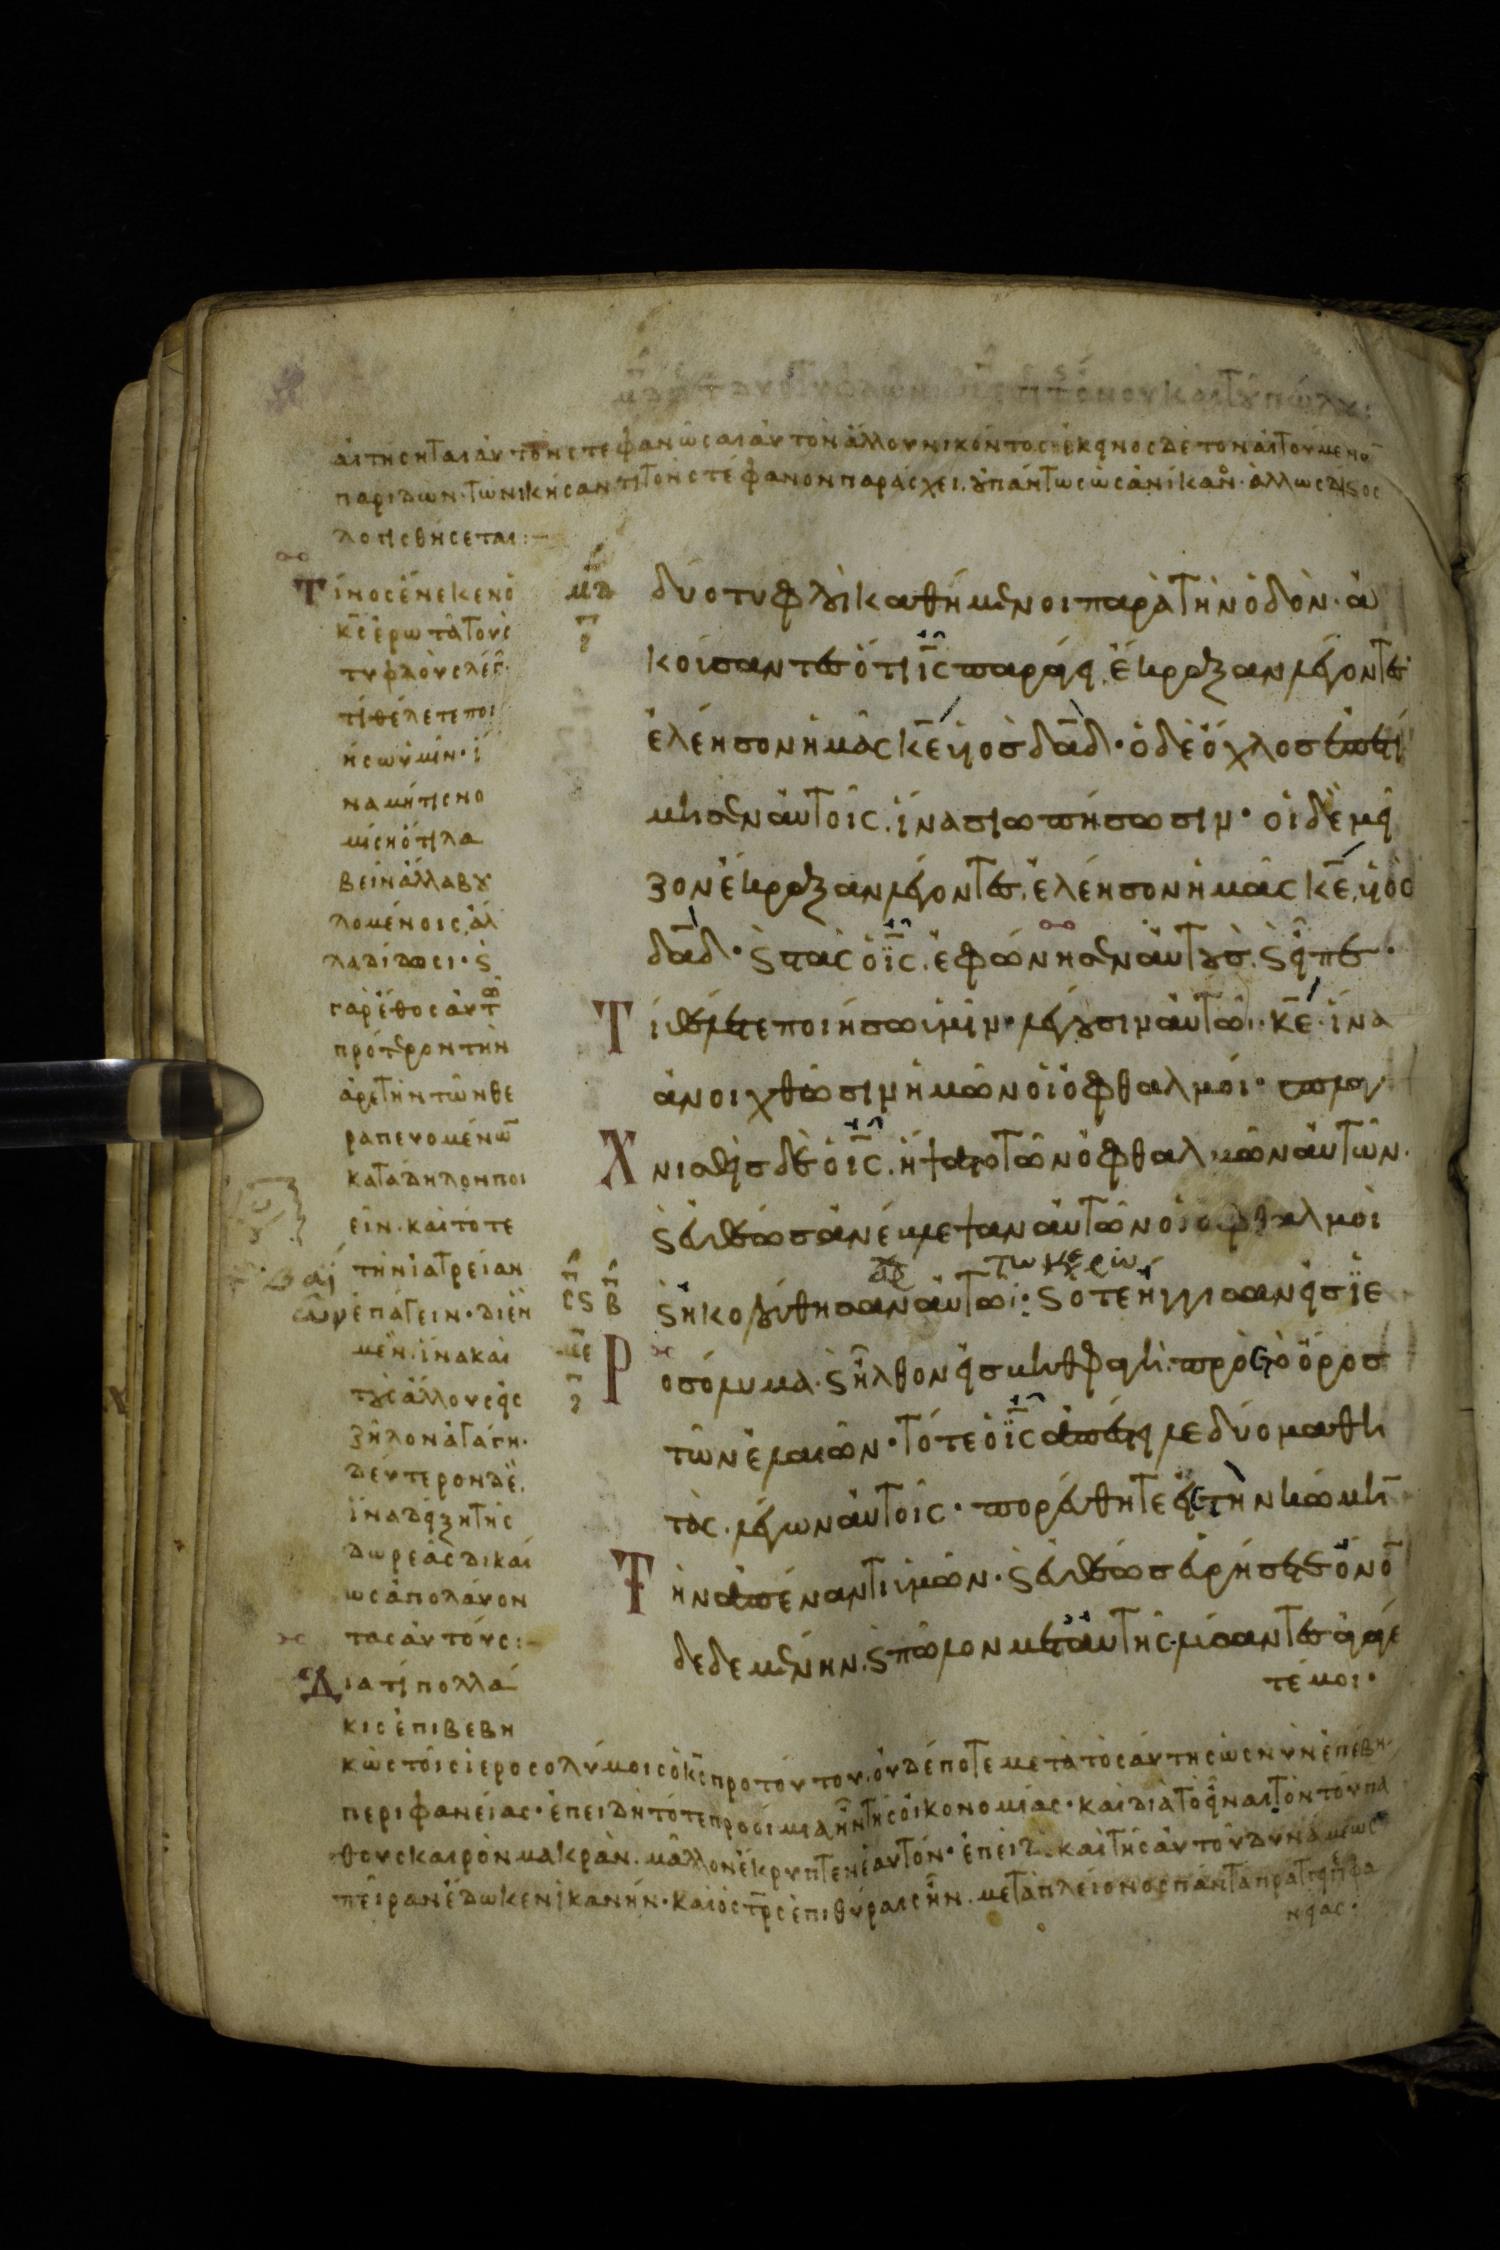 αἰτήσηται αὐτὸν στεφανῶσαι αὐτὸν ἄλλου νικόντος· ἐκεῖνος δὲ τὸν αἰτούμενον
παριδὼν· τῶ νικήσαντι τὸν στέφανον παράσχει. οὐ πάντως ὡς ἀνίκανος· ἀλλ ὡς δίκαιος
λογισθήσεται:
Τίνος ἕνεκεν ὁ
κς ἐρωτᾶ τοὺς
τυφλοὺς λέγ·
τί θέλετε ποι
ήσω ὑμῖν· ἵ
να μή τις νο
μίση ὅτι λα
βεῖν ἄλλα βου
λομένοις, ἄλ
λα δίδωσι· ϛ
γὰρ ἔθος αὐτω
πρότερον τὴν
ἀρετὴν τῶν θε
ραπευομένων
κατάδηλον ποι
εῖν. καὶ τότε
τὴν ἰατρείαν
ἐπάγειν· δι ἓν
μὲν. ἵνα καὶ
τοὺς ἄλλους εἰς
ζῆλον ἀγάγη·
δεύτερον δὲ,
ἵνα δείξη τῆς
δωρεᾶς δικαί
ως ἀπολάυον
τας αὐτούς:
δύο τυφλοὶ καθήμενοι παρὰ τὴν ὁδὸν· ἀ
κούσαντες ὅτι ις παράγει, ἔκραξαν λέγοντες·
ἐλέησον ἡμᾶς κε υἱὸς δαδ· ὁ δὲ ὄχλος ἐπετί
μησεν αὐτοῖς. ἵνα σιωπήσωσιν· οἱ δὲ μεῖ
ζον ἔκραξαν λέγοντες. ἐλέησον ἡμᾶς κε, υἱὸς
δαδ· ϛ στὰς ὁ ις. ἐφώνησεν αὐτοὺς. ϛ εἶπεν·
Τί θέλετε ποιήσω ὑμῖν· λέγουσιν αὐτῶ·. κε· ἵνα
ἀνοιχθῶσιν ἡμῶν οἱ ὀφθαλμοί·
Χνισθεὶς δὲ ὁ ις. ἥψατο τῶν ὀφθαλμῶν αὐτῶν.
ϛ εὐθέως ἀνέβλεψαν αὐτῶν οἱ ὀφθαλμοὶ
ϛ ἠκολούθησαν αὐτῶ: ϛ ὅτε ἤγγισαν εἰς ιε
Ροσόλυμα. ϛ ἦλθον εἰς βηθφαγὴ. πρὸς τὸ ὄρος
τῶν ἐλαιῶν· τότε ὁ ις ἀπέστειλε δύο μαθη
τὰς. λέγων αὐτοῖς· πορεύθητε εἰς τὴν κώμην
Τὴν ἀπέναντι ὑμῶν· ϛ εὐθέως εὑρήσετε ὄνον
δεδεμένην. ϛ πῶλον μετ αὐτῆς. λύσαντες ἀγάγε
τέ μοι·
Διατί πολλά
κις ἐπιβεβη
κὼς τοῖς ἱεροσολύμοις ὁ κς πρὸ τούτου. οὐδέποτε μετὰ τοσαύτης ὡς νῦν ἐπέβη
περιφανείας· ἐπειδὴ τότε προοίμια ἦν τῆς οἰκονομίας· καὶ διὰ τὸ εἶναι τὸν τοῦ πά
θους καιρὸν μακρὰν. μᾶλλον ἔκρυπτεν ἑαυτόν· ἐπεὶ δὲ καὶ τῆς αὐτοῦ δυνάμεως
πεῖραν ἔδωκεν ἱκανήν· καὶ ὁ στρς ἐπὶ θύραις ἦν. μετὰ πλείονος πάντα πράττει περιφα
νείας: